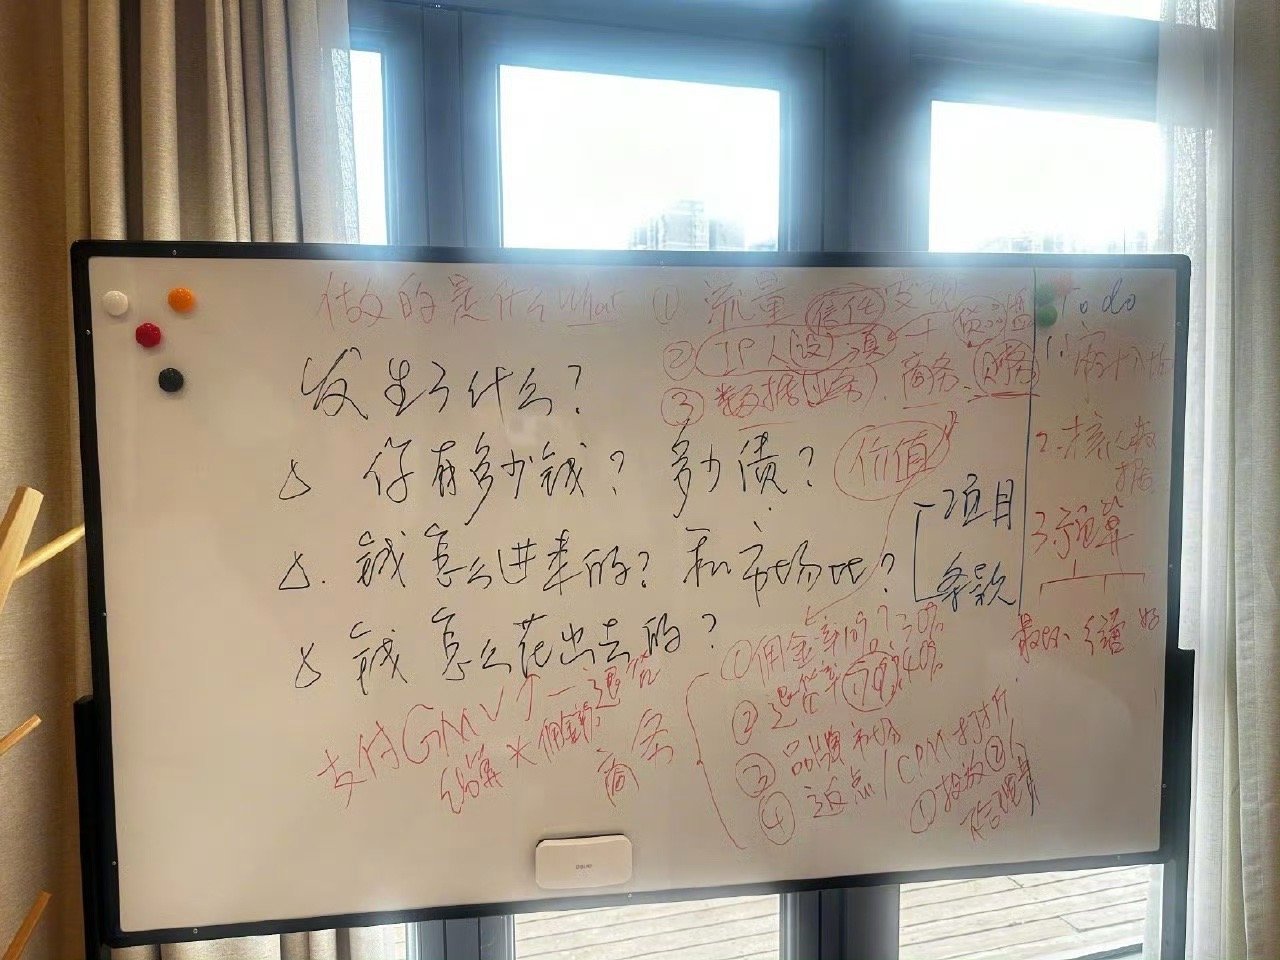 做的是什么 What ① 流量 信任 发现
② IP人设
③ 数据(业务)、商务、财务
发生了什么?
△ 你有多少钱? 多少债? 价值
△. 钱怎么进来的? 和市场比?
项目
条款
△ 钱怎么花出去的?
支付GMV 一退货
结算 * 佣金
商务
① 佣金率 10% ? 30%
② 退货率 70% 40%
③ 品牌 市场
④ 返点 / CPM 打折
① 投放 ②
To do
1.
2. 核心数据
3. 预算
deli